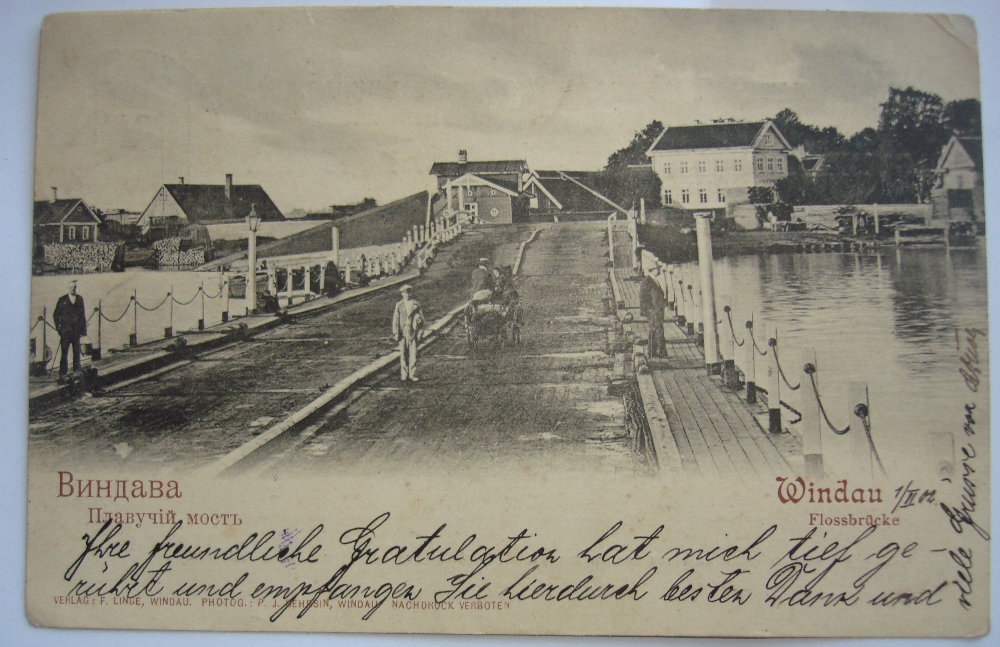 Виндава
Плавучій мостъ
Windau
Flossbrücke
1/II 02
Ihre freundliche Gratulation hat mich tief ge-
rührt und empfangen Sie hierdurch besten Dank und
viele Grüsse von
VERLAG: F. LINGE, WINDAU. PHOTOG.: P. J. WINDAU. NACHDRUCK VERBOTEN